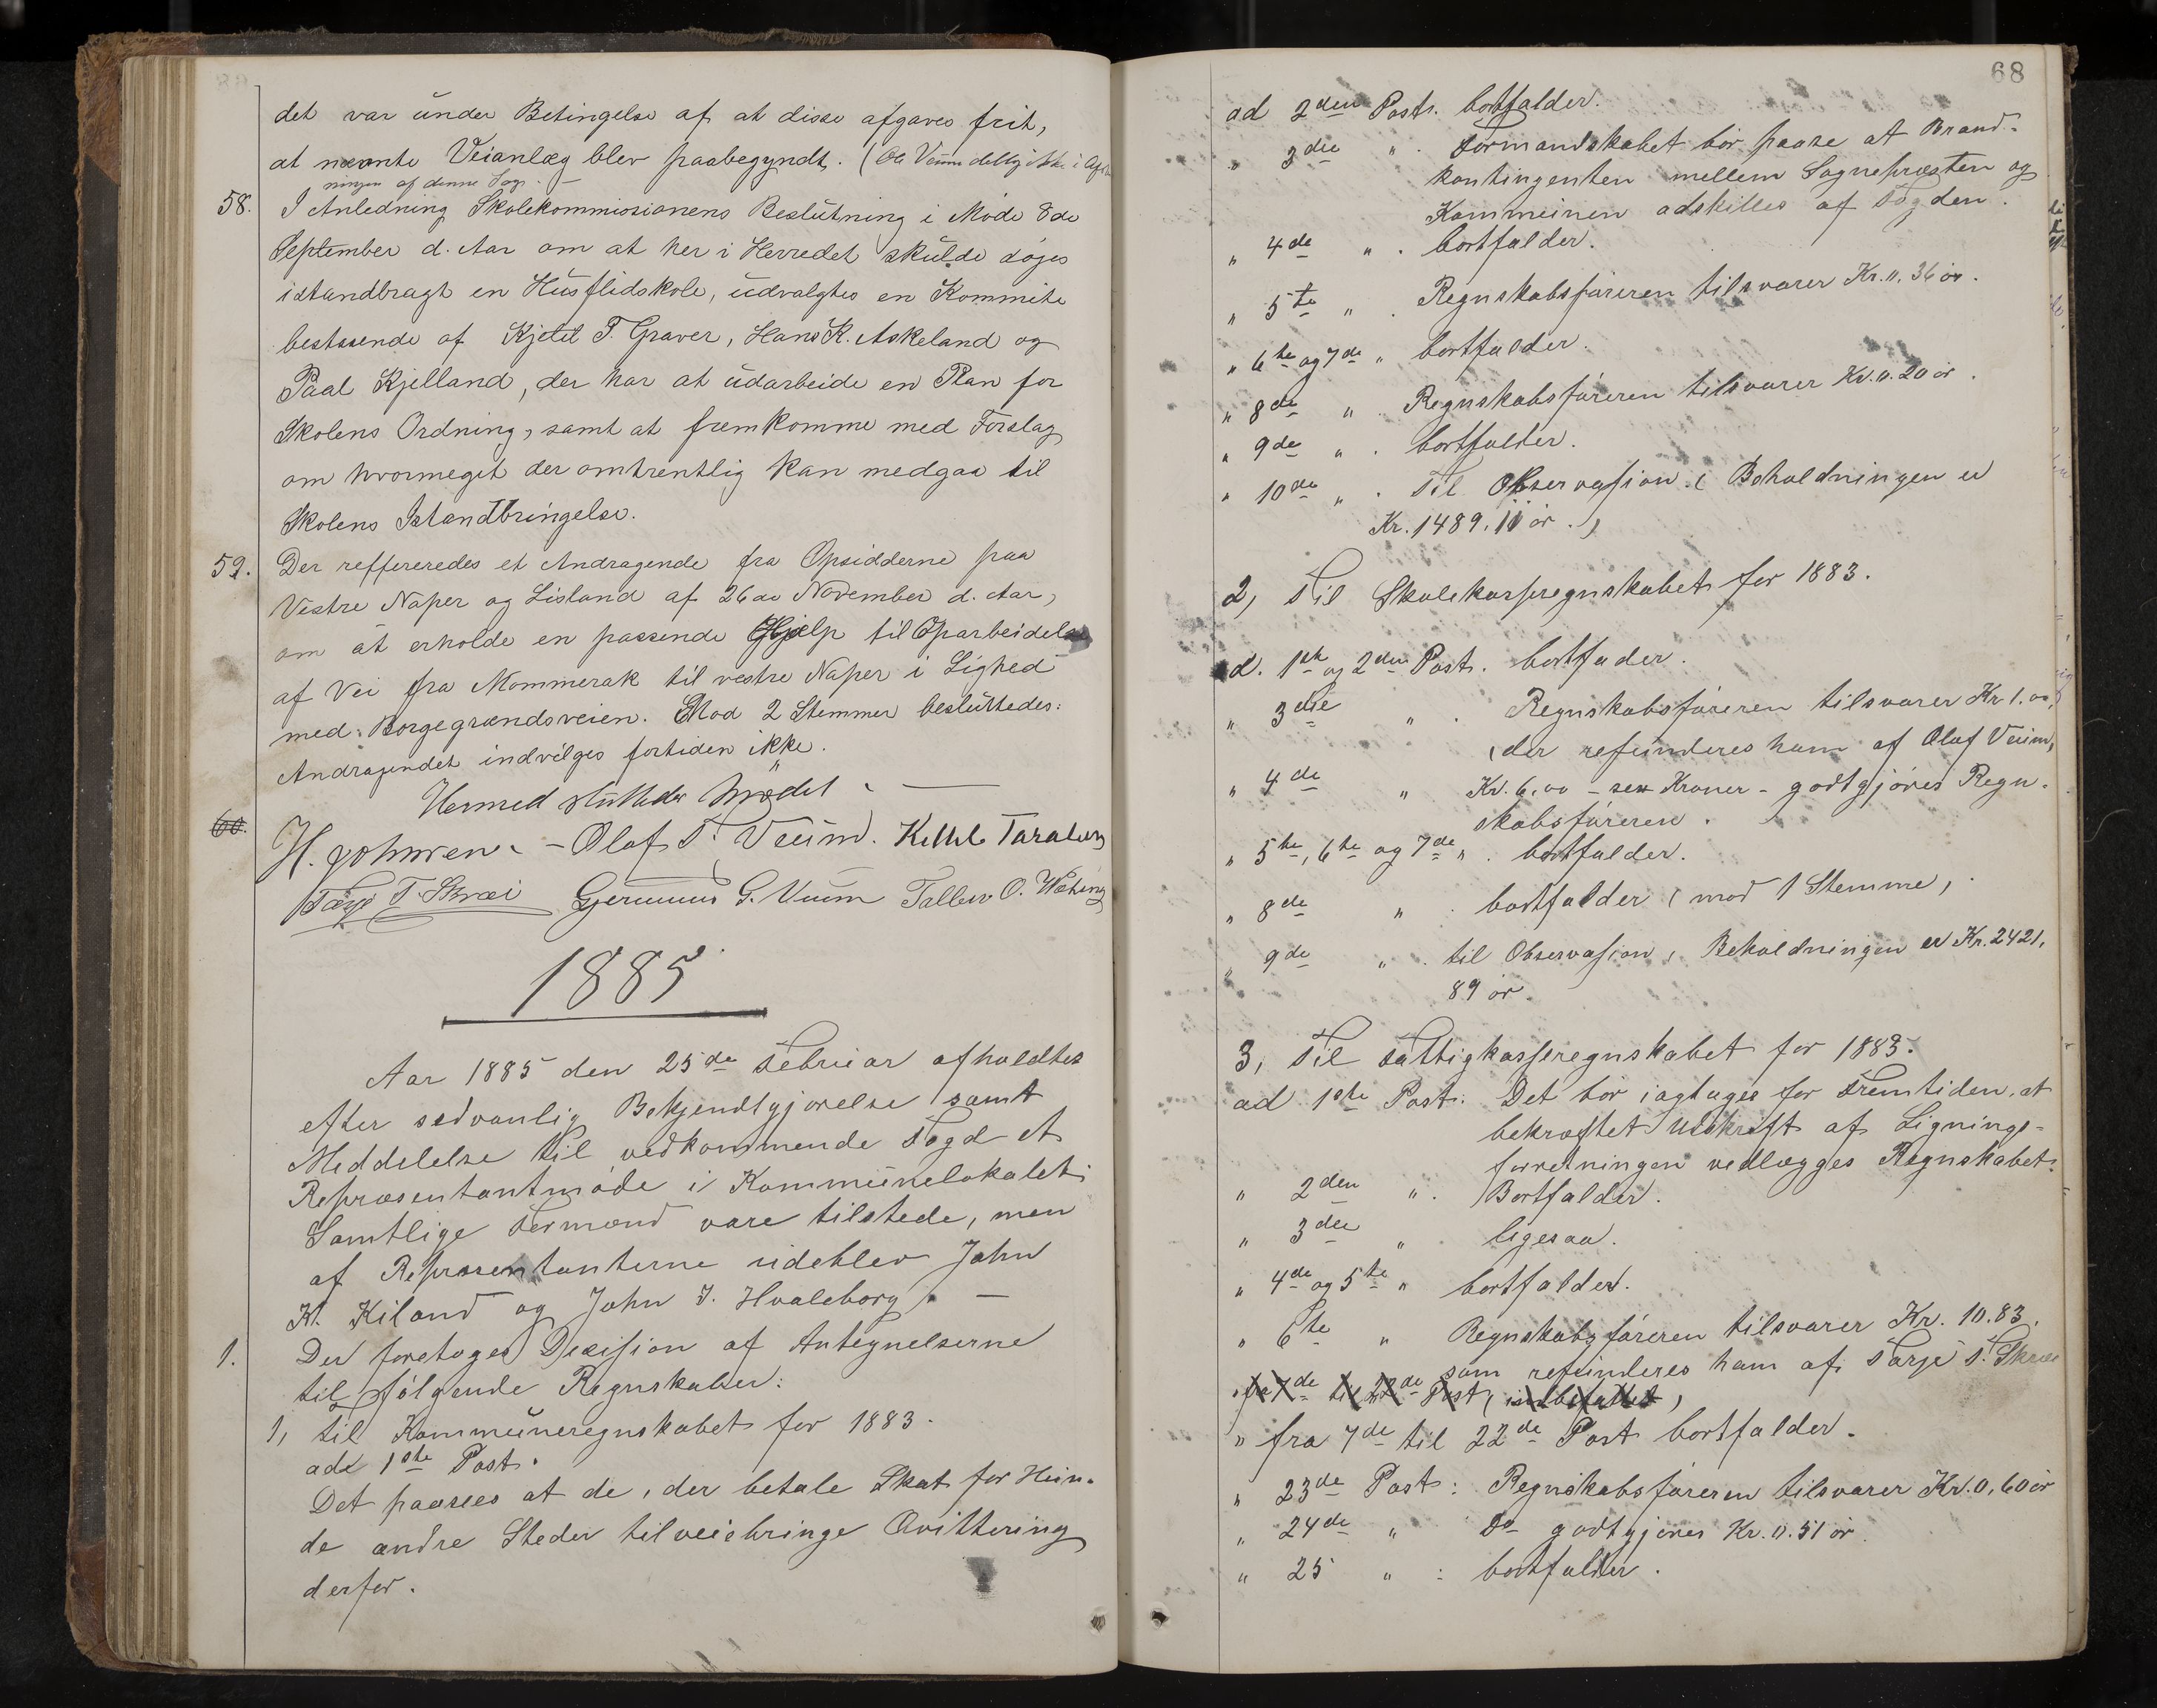 det var under Betingelse af at disse afgaves frit,
at nævnte Veianlæg blev paabegyndt. (Ol. Veum deltog ikke i Afgjør
ningen af denne Sag. —
58. I Anledning Skolekommissionens Beslutning i Møde 8de
September d. Aar om at her i Herredet skulde søges
istandbragt en Husflidskole, udvalgtes en Kommite
bestaaende af Kjetil T. Graver, Hans K. Askeland og
Paal Kjelland, der har at udarbeide en Plan for
Skolens Ordning, samt at fremkomme med Forslag
om hvormeget der omtrentlig kan medgaa til
Skolens Istandbringelse.
59. Der reffereredes et Andragende fra Opsidderne paa
Vestre Naper og Lisland af 26de November d. Aar,
om at erholde en passende Hjælp til Oparbeidelse
af Vei fra Mommerak til vestre Naper i Lighed
med Borgegrændsveien. Mod 2 Stemmer besluttedes:
Andragendet indvilges fortiden ikke.
Hermed sluttedes Mødet. —
60.
H. Johnsen. — Olof T. Veum. Kittil Taraldsen
Tarje T. Skræi Germund G. Veum Tallev O.
1885
Aar 1885 den 25de Februar afholdtes
efter sedvanlig Bekjendtgjørelse samt
Meddelelse til vedkommende Fogd et
Repræsentantmøde i Kommunelokalet.
Samtlige Formænd vare tilstede, men
af Repræsentanterne udeblev John
K. Kiland og John J. Hvaleborg. —
1. Der foretoges Decision af Antegnelserne
til følgende Regnskaber:
1, til Kommuneregnskabet for 1883.
ad 1ste Post.
Det paasees at de, der betale Skat for Heien-
de andre Steder tilveiebringe Qvittering
derfor.
68
ad 2den Post. bortfalder.
" 3die " . Formandskabet bør paase at Brand-
kontingenten mellem Sognepræsten og
Kommunen adskilles af Fogden.
" 4de " . bortfalder.
" 5te " . Regnskabsføreren tilsvarer Kr. 0.36 ør.
" 6te og 7de " bortfalder.
" 8de " . Regnskabsføreren tilsvarer Kr. 0.20 ør.
" 9de " . bortfalder.
" 10de " . Til Observasion. (Beholdningen er
Kr. 1489.11 ør.)
2, Til Skolekasseregnskabet for 1883.
ad. 1ste og 2den Post. bortfader.
" 3die " . Regnskabsføreren tilsvarer Kr 1.00,
(der refunderes ham af Olaf Veum,
" 4de " Kr. 6.00 — sex Kroner — godtgjøres Regn-
skabsføreren.
" 5te, 6te og 7de " . bortfalder.
" 8de " . bortfalder (mod 1 Stemme),
" 9de " . til Observasion, Beholdningen er Kr. 2421,
89 ør.
3, Til Fattigkasseregnskabet for 1883.
ad 1ste Post: Det bør iagtages for Fremtiden, at
bekræftet Udskrift af Lignings-
forretningen vedlægges Regnskabet.
" 2den " . Bortfalder.
" 3die " ligesaa.
" 4de og 5te " bortfalder.
" 6te " Regnskabsføreren tilsvarer Kr. 10.83.
som refunderes ham af Tarje T. Skræi
" fra 7de til 22de Post (indbefattet)
" fra 7de til 22de Post bortfalder.
" 23de Post: Regnskabsføreren tilsvarer Kr. 0,60 ør
" 24de " Do godtgjøres Kr. 0.51 ør.
" 25 " : bortfalder.